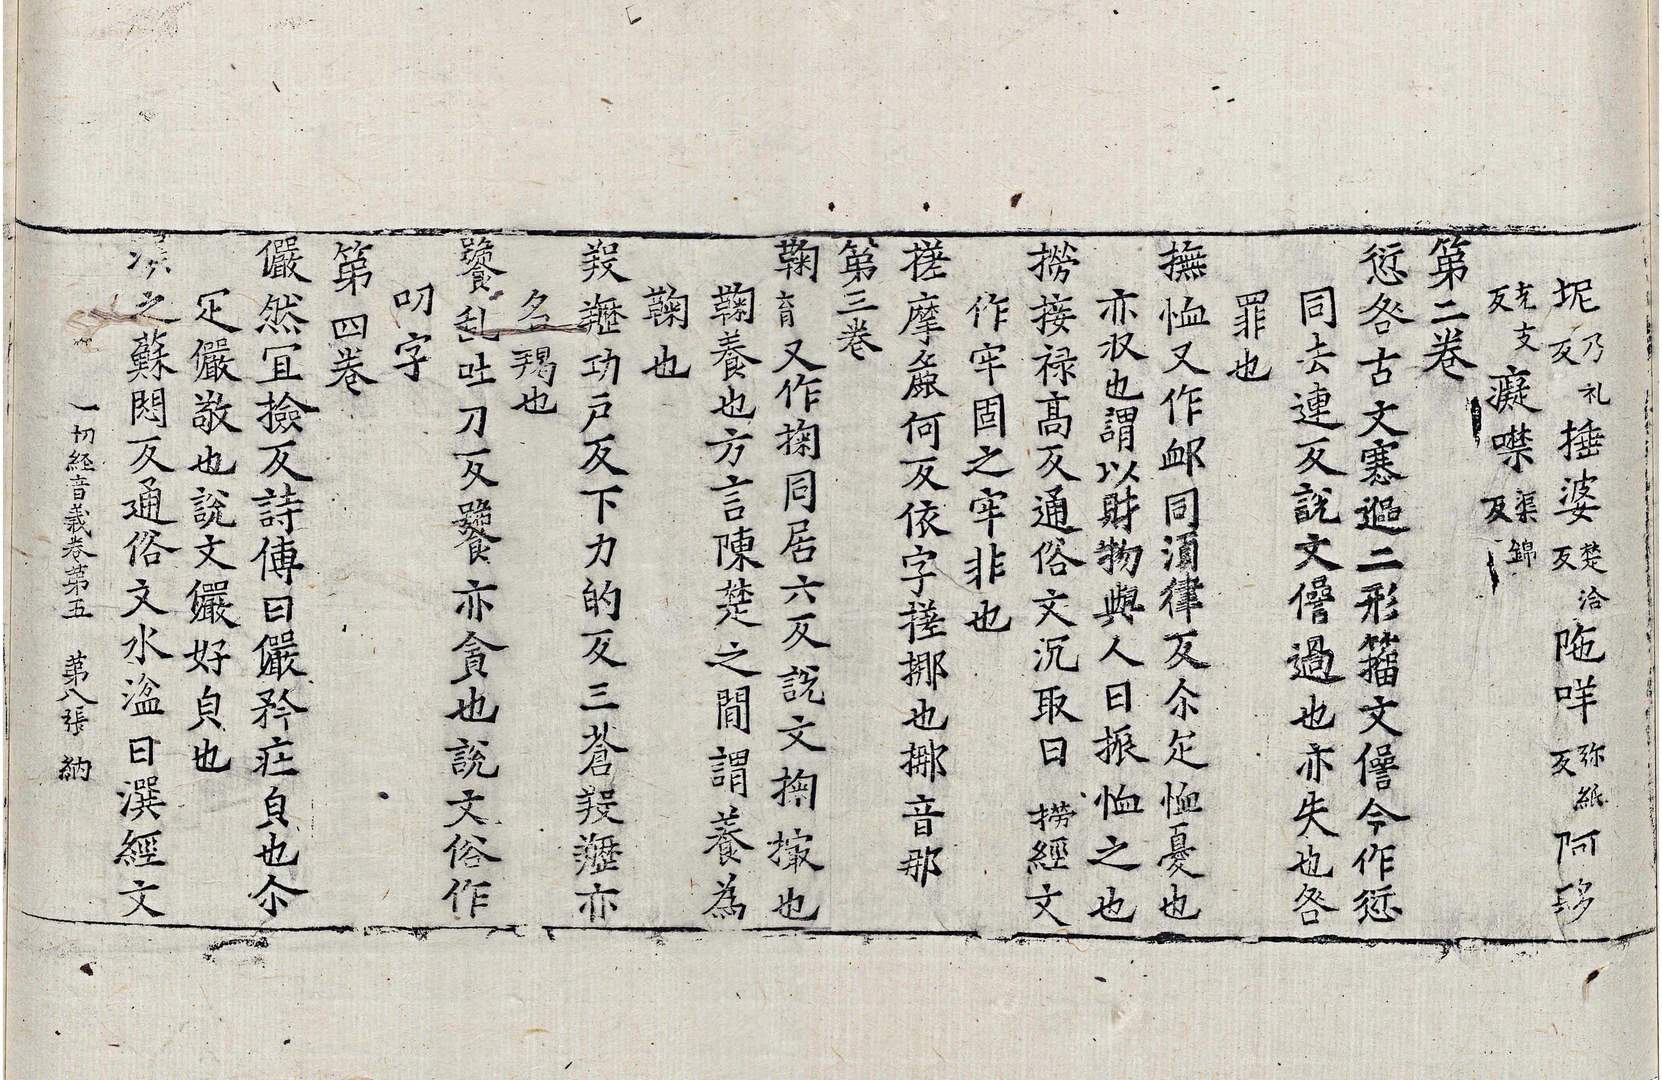 坭乃礼反捶婆楚洽反陁咩弥紙反阿㢋
充支反癡噤渠錦反
第二卷
愆咎古文寋遈二形籀文僭今作愆
同去連反說文僭過也亦失也咎
罪也
撫恤又作卹同湏律反尒疋恤憂也
亦収也謂以財物與人曰振恤之也
撈接禄髙反通俗文沉取曰撈經文
作牢固之牢非也
搓摩麁何反依字搓挪也挪音那
第三卷
鞠育又作掬同居六反說文掬撮也
鞠養也方言陳楚之間謂養為
鞠也
羖䍽功戶反下力的反三蒼羖䍽亦
名羯也
饕亂吐刀反饕亦貪也說文俗作
叨字
第四卷
儼然冝撿反詩傳曰儼矜庄皃也尒
疋儼敬也說文儼好皃也
潠之蘇悶反通俗文水湓曰潠經文
一切経音義卷第五 第八張 納